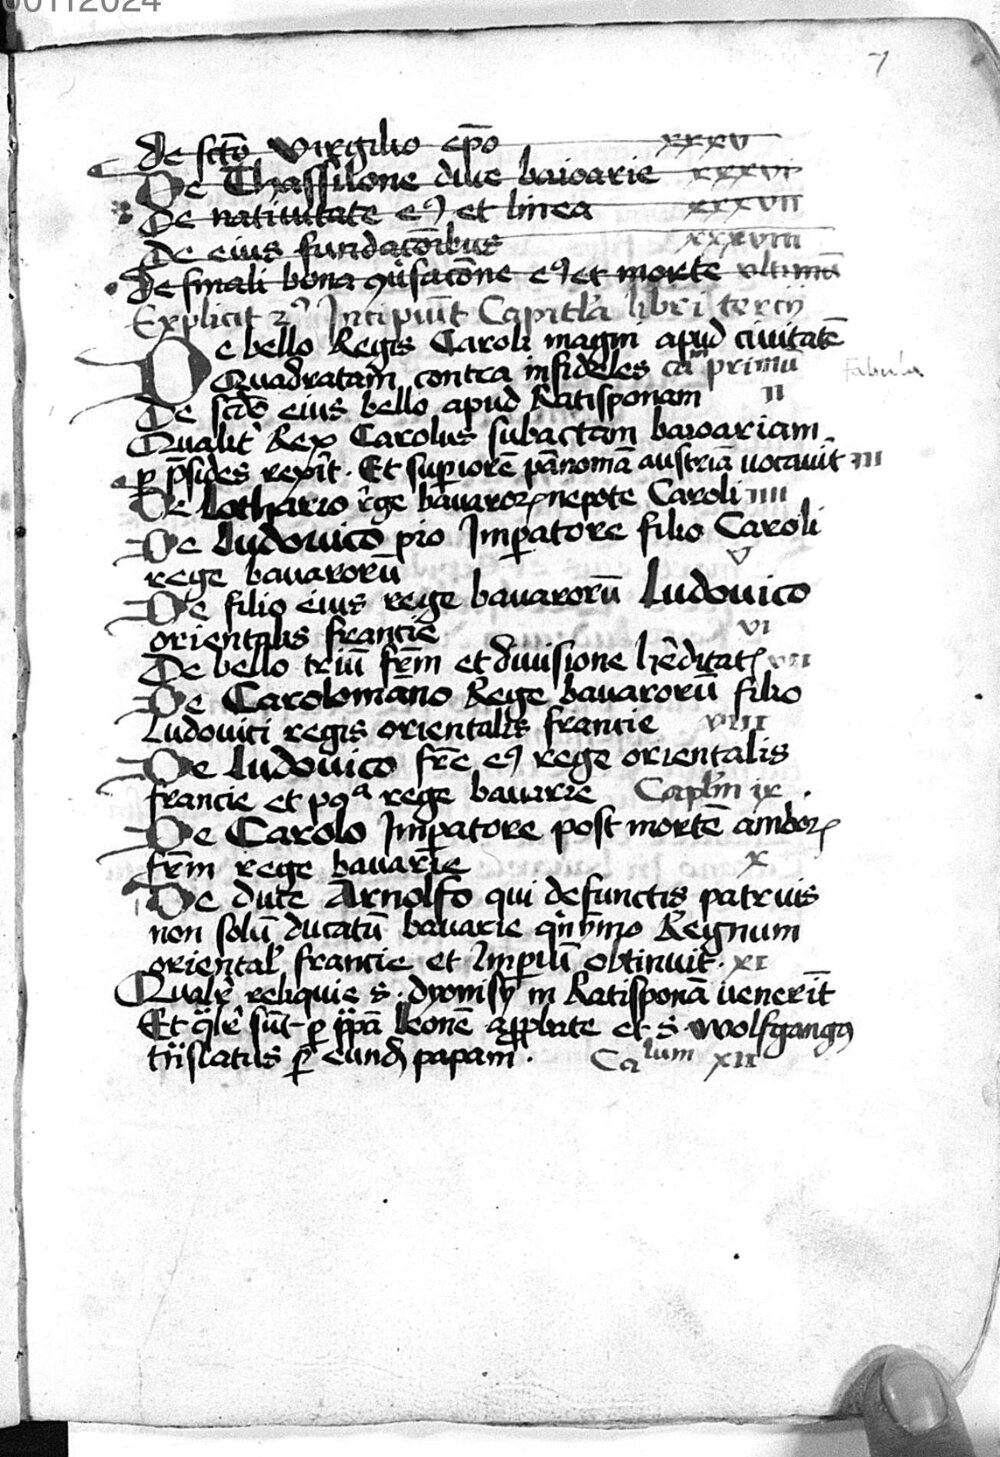 00112024
7
De scto Virgilio epo xxxv
De Thassilone duce baioarie xxxvi
De natiuitate eꝰ et linea xxxvii
De eius fundacõibus xxxviii
De finali bona ꝯũsacõne eꝰ et morte ultimũ
Explicit 2ꝰ Incipiũt Capitl'a libri tercij
De bello Regis Caroli magni apud ciuitatẽ
Quadratam contra infideles cam primũ
Fabula
De scdo eius bello apud Ratisponam II
Qualit' Rex Carolus subactam baioariam
ꝑ p̃sides rexit. Et superiorẽ pãnoniã austriã uocauit III
De Lothario rege bauaroꝝ nepote Caroli IIII
De Ludouico pio Imꝑatore filio Caroli
rege bauarorũ V
De filio eius rege bauarorũ Ludouico
orientalis francie VI
De bello triũ frm̃ et diuisione hẽditatꝭ VII
De Carolomãno Rege bauarorũ filio
Ludouici regis orientalis francie VIII
De Ludouico fr̃e eꝰ rege orientalis
francie et pꝰqa rege bauarie Caplm̃ ix .
De Carolo Imꝑatore post mortẽ amboꝝ
frm̃ rege bauarie x
De duce Arnolfo qui defunctis patruis
non solũ ducatũ bauarie qinỹmo Regnum
oriental' francie et Imꝑiũ obtinuit. XI
Qualr' reliquie s. dyonisij in Ratisponã uenerĩt
Et qlr' sũt ꝑ ppã leonẽ apꝓbate et s. wolfgangꝰ
trislatus ꝑ eundẽ papam. Calum XII